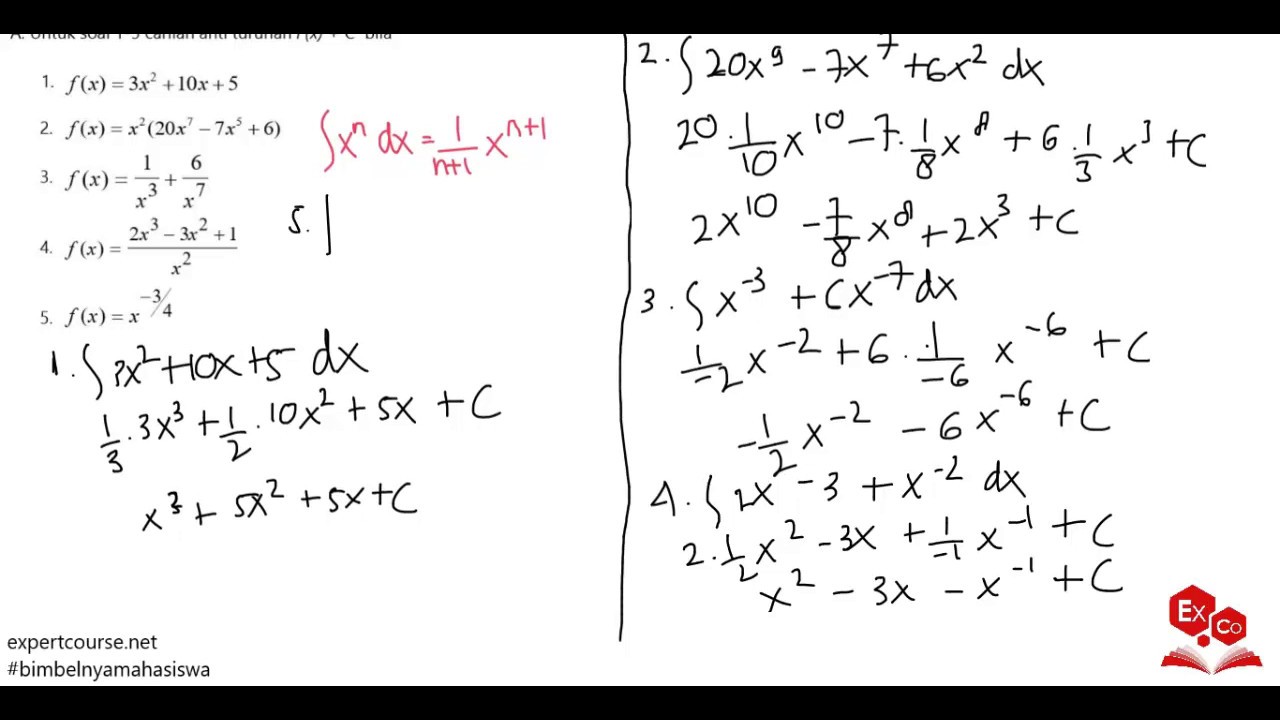 A. Untuk soal 1-5 carilah anti turunan F(x) + C bila
1. f(x) = 3x² + 10x + 5
2. f(x) = x²(20x⁷ − 7x⁵ + 6)
3. f(x) = 1/x³ + 6/x⁷
4. f(x) = (2x³ − 3x² + 1)/x²
5. f(x) = x^(−3/4)
∫xⁿ dx = 1/(n+1) xⁿ⁺¹
5. ∫
1. ∫3x² + 10x + 5 dx
1/3 · 3x³ + 1/2 · 10x² + 5x + C
x³ + 5x² + 5x + C
2. ∫20x⁹ − 7x⁷ + 6x² dx
20 · 1/10 x¹⁰ − 7 · 1/8 x⁸ + 6 · 1/3 x³ + C
2x¹⁰ − 7/8 x⁸ + 2x³ + C
3. ∫x⁻³ + 6x⁻⁷ dx
1/−2 x⁻² + 6 · 1/−6 x⁻⁶ + C
−1/2 x⁻² − 6x⁻⁶ + C
4. ∫2x − 3 + x⁻² dx
2 · 1/2 x² − 3x + 1/−1 x⁻¹ + C
x² − 3x − x⁻¹ + C
expertcourse.net
#bimbelnyamahasiswa
Ex
Co